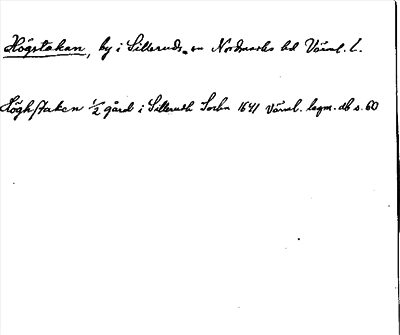 Högstakan, by i Silleruds sn Nordmarks hd Värml. l.
Högh/taken 1/2 gård i Sillerudh Sochn 1641 Värml. lagm. db s. 60